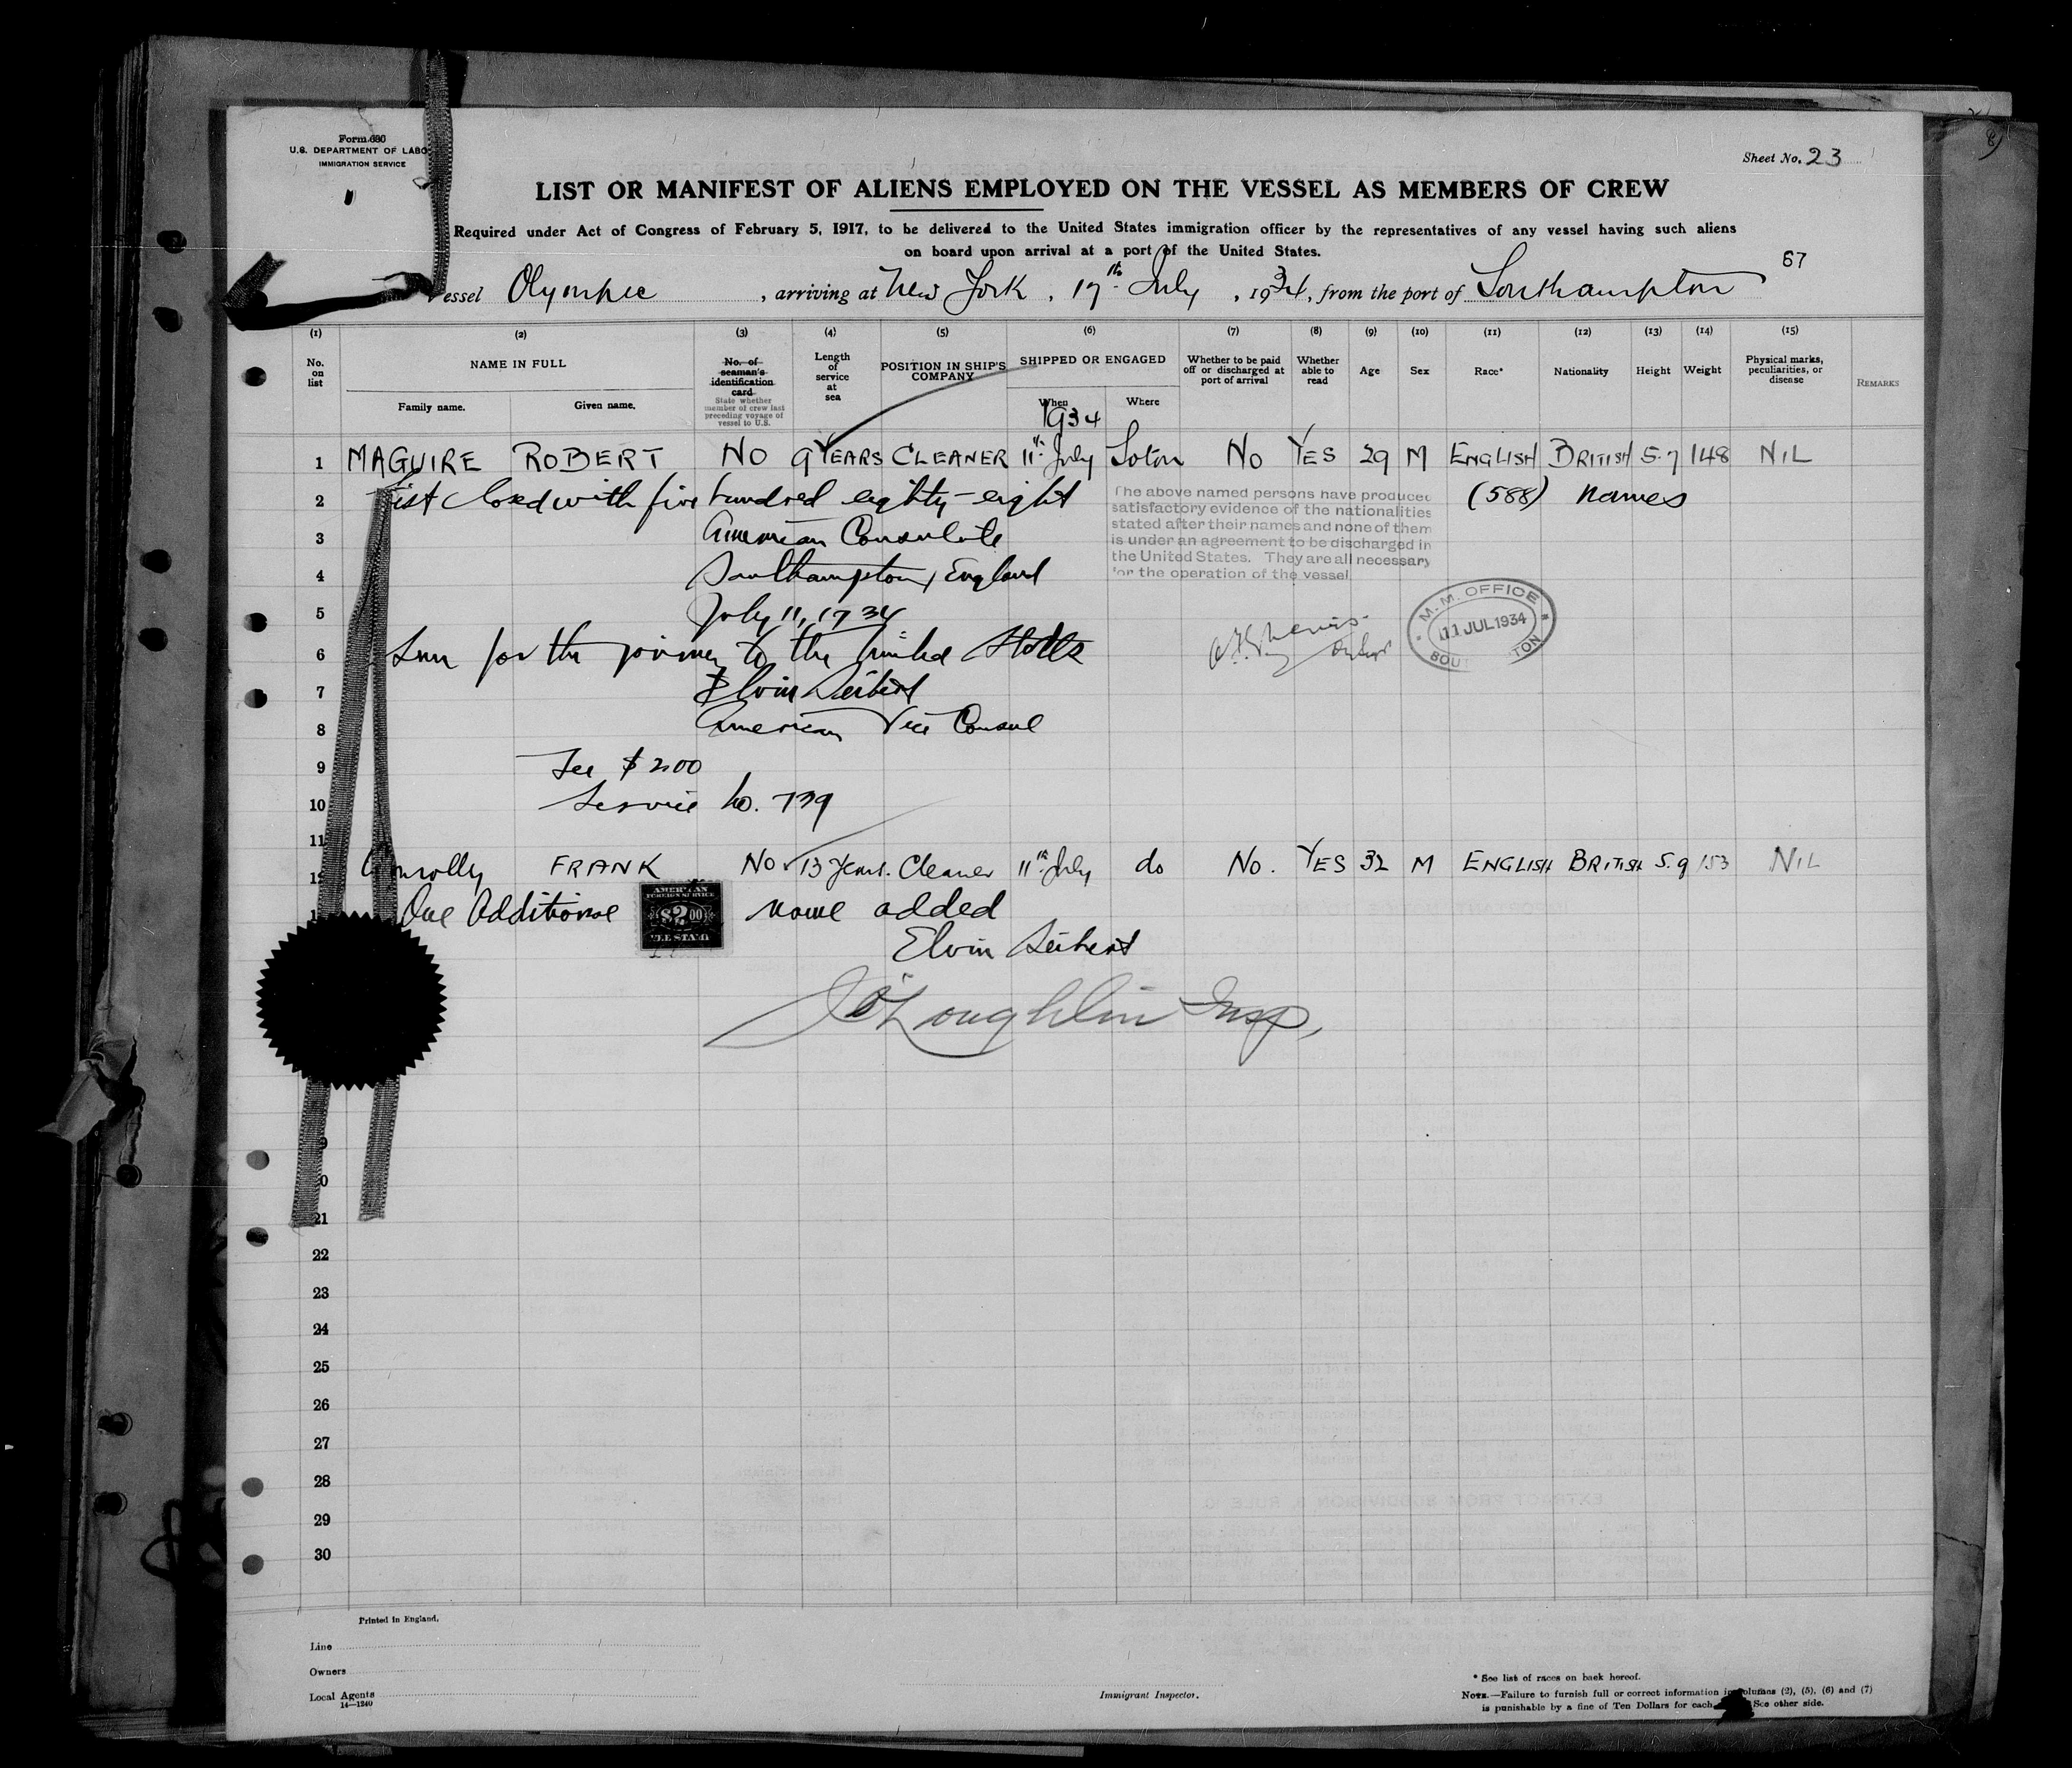 Form 680
U.S. DEPARTMENT OF LABO
IMMIGRATION SERVICE
Sheet No. 23
LIST OR MANIFEST OF ALIENS EMPLOYED ON THE VESSEL AS MEMBERS OF CREW
Required under Act of Congress of February 5, 1917, to be delivered to the United States immigration officer by the representatives of any vessel having such aliens
on board upon arrival at a port of the United States.
67
essel Olympic, arriving at New York, 17th July, 1934, from the port of Southampton
(1) (2) (3) (4) (5) (6) (7) (8) (9) (10) (11) (12) (13) (14) (15)
No. on list
NAME IN FULL
Family name. Given name.
No. of seaman's identification card
State whether member of crew last preceding voyage of vessel to U.S.
Length of service at sea
POSITION IN SHIP'S COMPANY
SHIPPED OR ENGAGED
When Where
1934
Whether to be paid off or discharged at port of arrival
Whether able to read
Age
Sex
Race*
Nationality
Height
Weight
Physical marks, peculiarities, or disease
REMARKS
1 MAGUIRE ROBERT NO 9 YEARS CLEANER 11th July Soton No YES 29 M ENGLISH BRITISH 5.7 148 NIL
2 List closed with five hundred eighty-eight (588) names
The above named persons have produced
satisfactory evidence of the nationalities
stated after their names and none of them
is under an agreement to be discharged in
the United States. They are all necessary
for the operation of the vessel
3 American Consulate
4 Southampton, England
5 July 11, 1934
M.M. OFFICE
11 JUL 1934
6 Seen for the journey to the United States
7 Elvin Seibert
8 American Vice Consul
9 Fee $2.00
10 Service No. 739
11
12 Connolly FRANK No 13 Years. Cleaner 11th July do No. YES 32 M ENGLISH BRITISH 5.9 153 NIL
One Additional name added
AMERICAN
FOREIGN SERVICE
$2.00
FEE STAMP
Elvin Seibert
J O'Loughlin Insp.
21
22
23
24
25
26
27
28
29
30
Printed in England.
Line
Owners
Local Agents
14—1240
Immigrant Inspector.
* See list of races on back hereof.
NOTE.—Failure to furnish full or correct information in columns (2), (5), (6) and (7)
is punishable by a fine of Ten Dollars for each See other side.